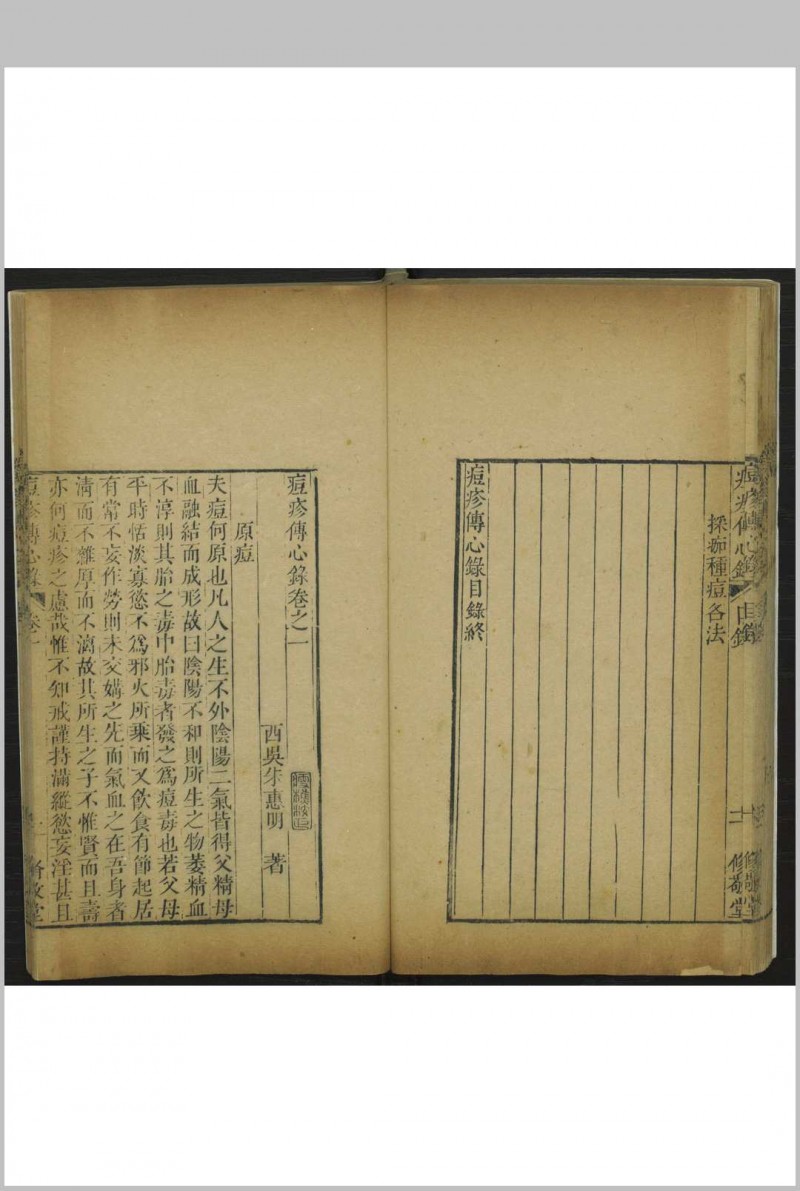 痘疹傳心錄 目錄 十一 修敬堂
採痂種痘各法
痘疹傳心錄目錄終
痘疹傳心錄卷之一
西吳朱惠明 著
原痘
夫痘何原也凡人之生不外陰陽二氣皆得父精母
血融結而成形故曰陰陽不和則所生之物萎精血
不淳則其胎之毒中胎毒者發之爲痘毒也若父母
平時恬淡寡慾不爲邪火所乗而又飲食有節起居
有常不妄作勞則未交媾之先而氣血之在吾身者
清而不雜厚而不漓故其所生之子不惟賢而且壽
亦何痘疹之慮哉惟不知戒謹持滿縱慾妄淫甚且
痘疹傳心錄 卷一 一 修敬堂